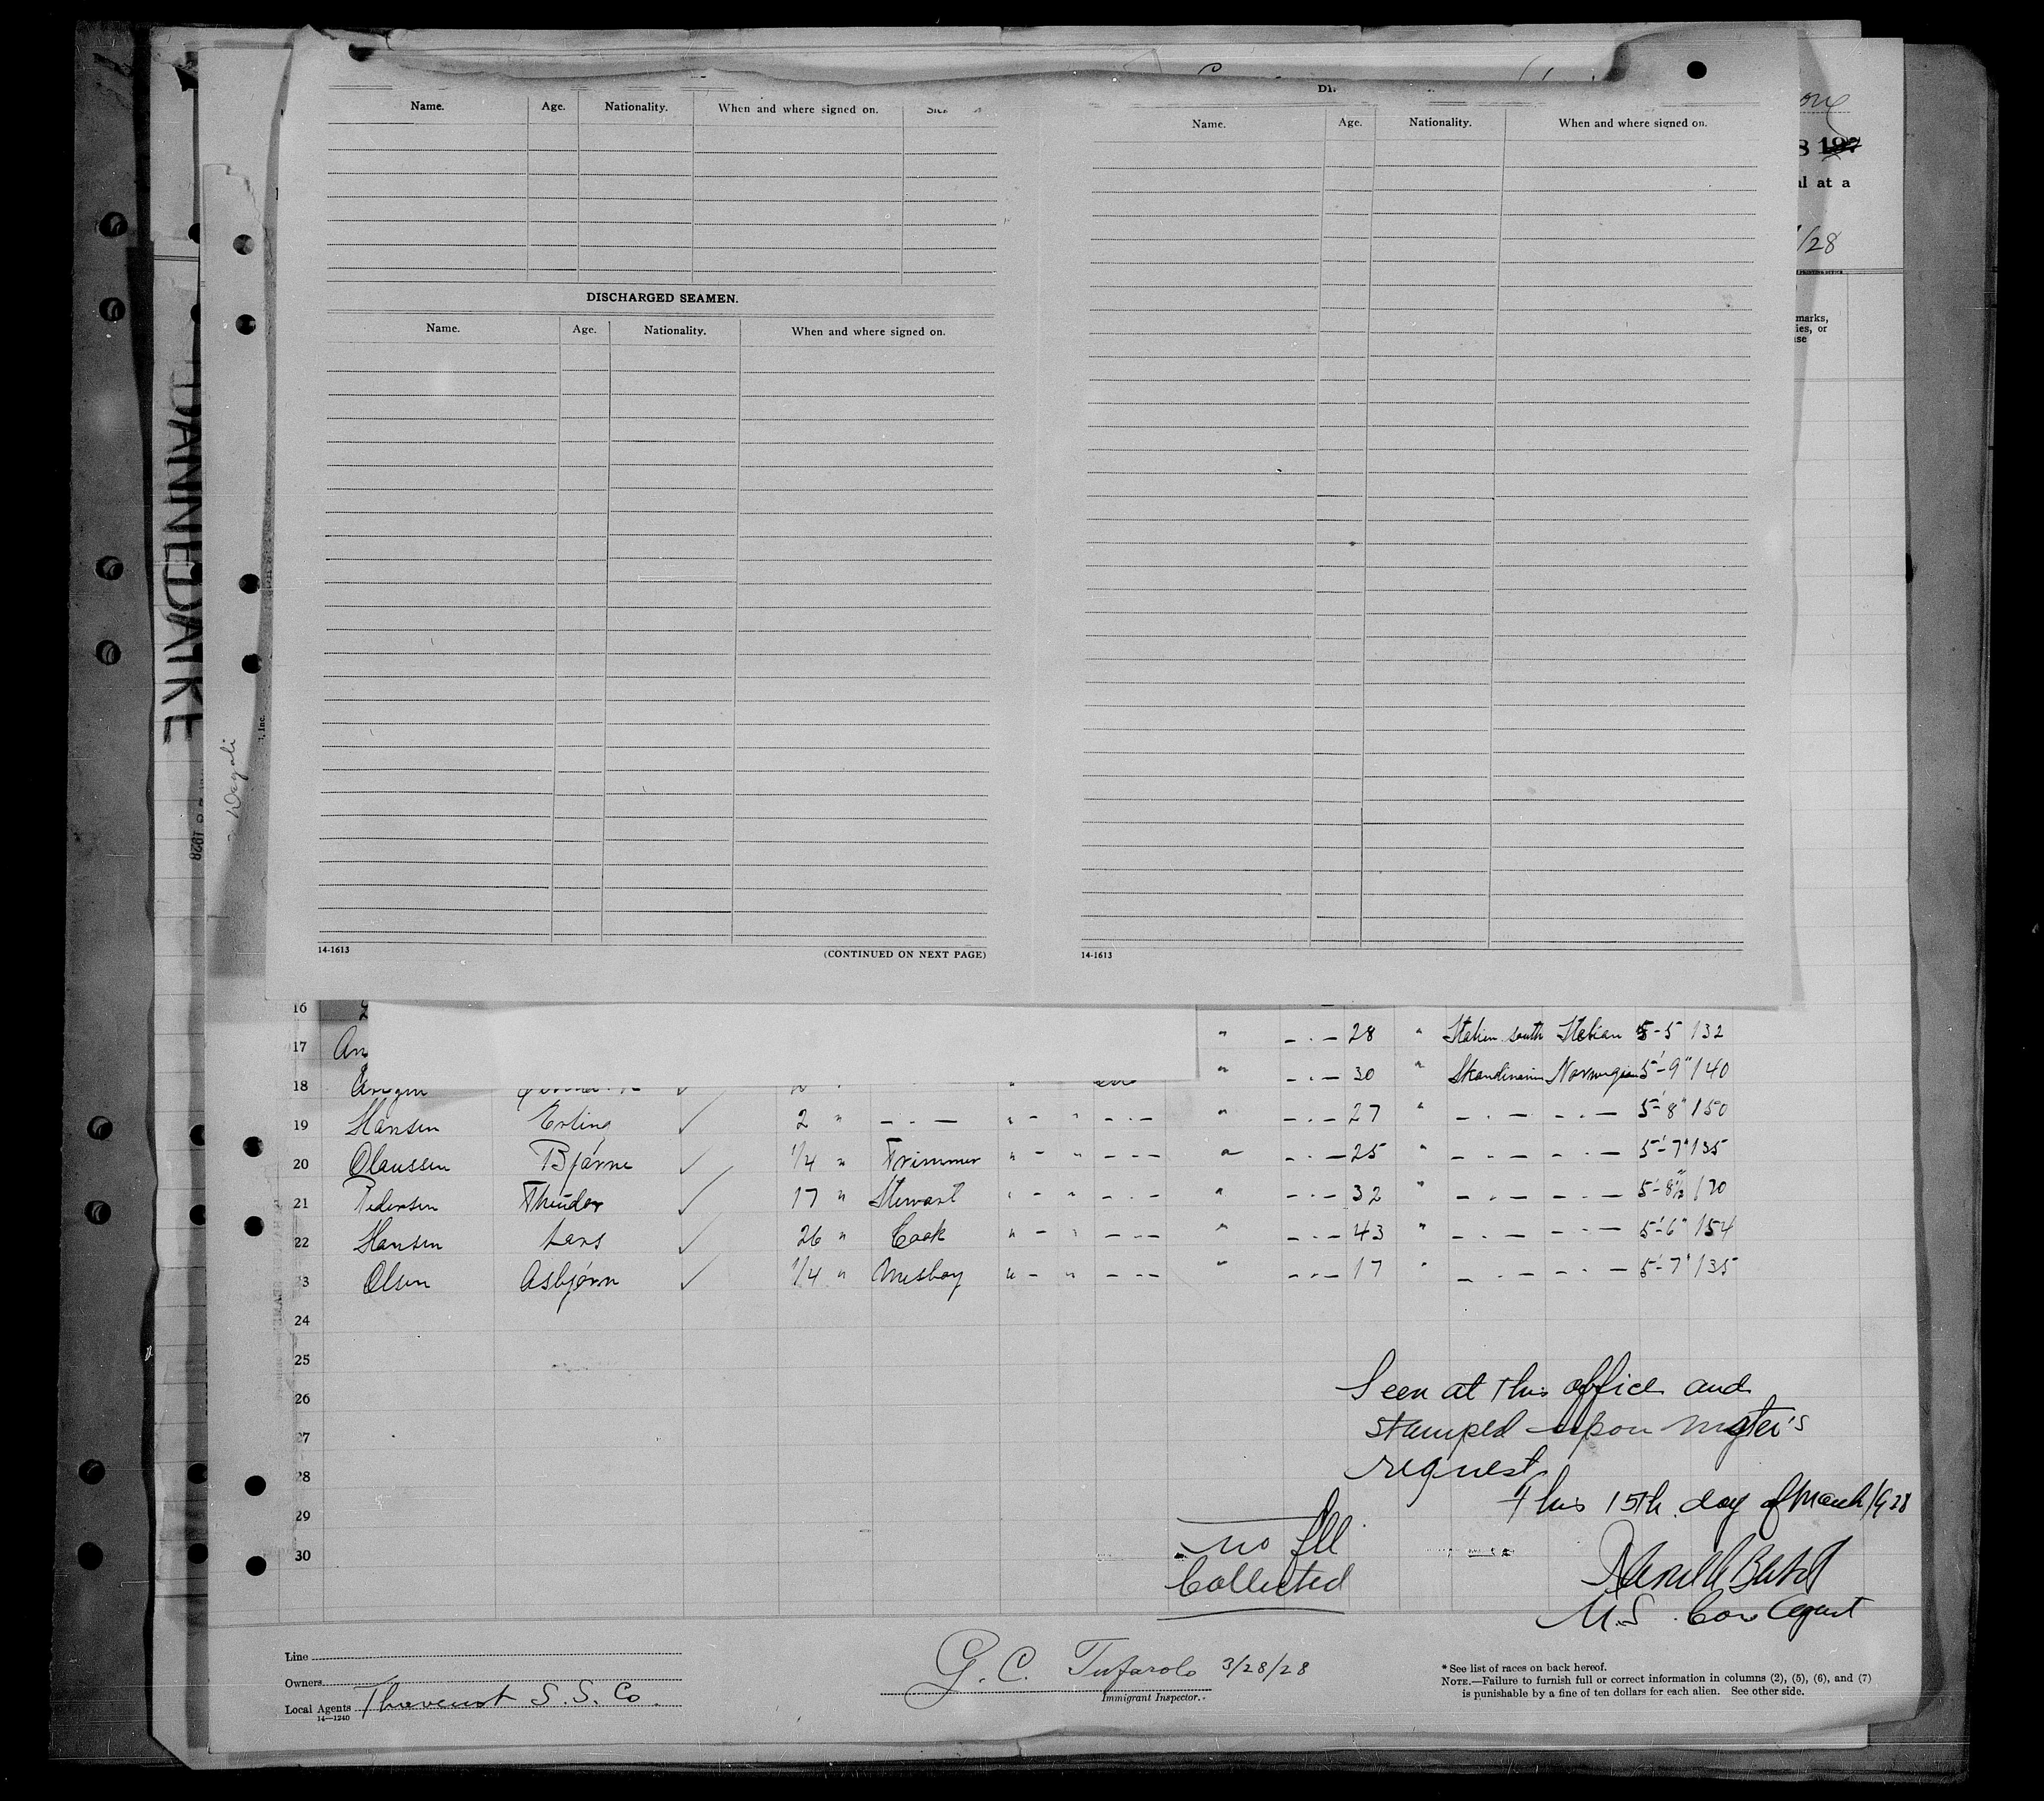 Name. Age. Nationality. When and where signed on.
DISCHARGED SEAMEN.
Name. Age. Nationality. When and where signed on.
14-1613 (CONTINUED ON NEXT PAGE)
Name. Age. Nationality. When and where signed on.
14-1613
8 197
al at a
/28
marks,
ies, or
use
DANNEDAIKE
1928
, Inc.
16
17 An " - . - 28 " Italien south Italian 5-5 132
18 " - . - 30 " Skandinavin Norwegian 5'-9" 140
19 Hansen Erling ✓ 2 " - . - " - " - . - " - . - 27 " - . - - . - 5'-8" 150
20 Olaussen Bjårne ✓ 1/4 " Trimmer " - " - . - " - . - 25 " - . - - . - 5'-7" 135
21 Pedersen Theodor ✓ 17 " Stewart " - " - . - " - . - 32 " - . - - . - 5'-8½" 170
22 Hansen Lars ✓ 26 " Cook " - " - . - " - . - 43 " - . - - . - 5'-6" 154
23 Olsen Asbjørn ✓ 1/4 " Mesboy " - " - . - " - . - 17 " - . - - . - 5'-7" 135
24
25
26
27
28
29
30
Seen at this office and
stamped upon master's
request
this 15th day of March 1928
U.S. Con Agent
no fee
Collected
Line
Owners
Local Agents S. S. Co.
14—1240
G. C. Tufarolo 3/28/28
Immigrant Inspector.
* See list of races on back hereof.
NOTE.—Failure to furnish full or correct information in columns (2), (5), (6), and (7)
is punishable by a fine of ten dollars for each alien. See other side.